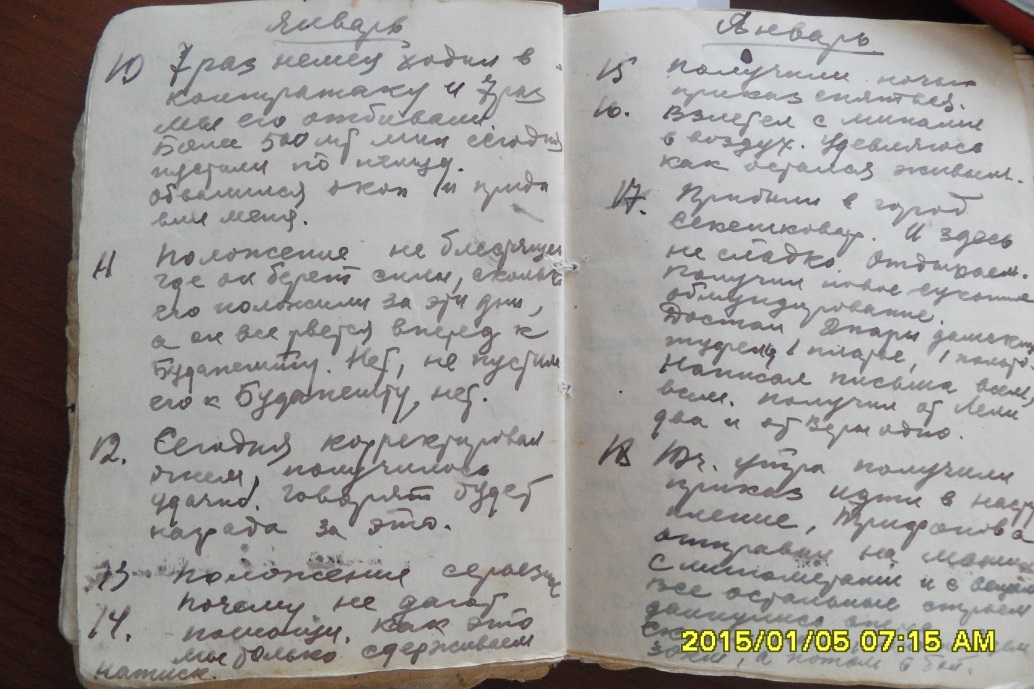 Январь
10 7 раз немец ходил в
контратаку и 7 раз
мы его отбивали
Более 500 шт мин сегодня
пустили по немцу.
обвалился окоп и прида
вил меня.
11 Положение не блестящее
где он берет силы, сколько
его положили за эти дни,
а он все рвется вперед к
Будапешту. Нет, не пустим
его к Будапешту, нет.
12. Сегодня корректировал
огнем, получилось
удачно. говорят будет
награда за это.
13 Положение серьезное
почему не дают
14. помощи. как это
мы только сдерживаем
натиск.
Январь
15 Получили ночью
приказ сняться.
16. Взлетел с минами
в воздух. Удевляюсь
как остался живым.
17. Прибыли в город
Секешковар. И здесь
не сладко. Отдыхаем.
Получил новое
обмундирование.
Достал 2 пары дамских
туфель, 1 платье, 1 пальто.
Написал письма всем,
всем. получил от Лели
два и от Веры одно.
18 10 ч. утра получили
приказ идти в насту
пление, Трифонова
отправил на машине
с минометами и с
все остальные строем
двинулись
а потом в бой.
2015/01/05 07:15 AM